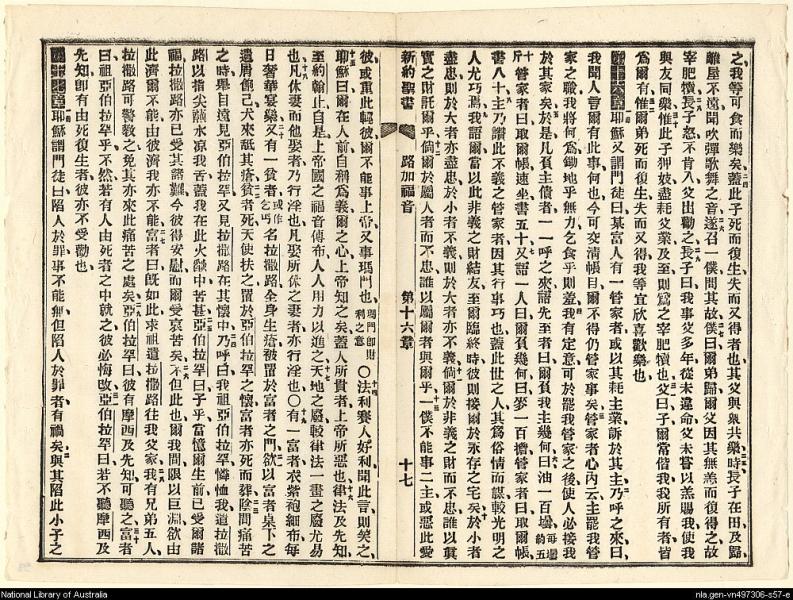 之我等可食而樂矣蓋此子死而復生失而又得者也其父與衆共樂時長子在田及歸
離屋不遠聞吹彈歌舞之音遂召一僕問其故僕曰爾弟歸爾父因其無恙而復得之故
宰肥犢長子怒不肯入父出勸之長子曰我事父多年從未違命父未嘗以羔賜我使我
與友同樂惟此子狎妓盡耗父業及至則爲之宰肥犢也父曰子爾常偕我我所有者皆
爲爾有惟爾弟死而復生失而又得我等宜欣喜歡樂也
第十六章耶穌又謂門徒曰某富人有一管家者或以其耗主業訴於其主乃呼之來曰
我聞人言爾有此事何也今可交清帳目爾不得仍管家事矣管家者心內云主罷我管
家之職我將何爲鋤地乎無力乞食乎則羞我有定意可於罷我管家之後使人必接我
於其家矣於是凡負主債者一一呼之來語先至者曰爾負我主幾何曰油一百罎每罎約五
十斤管家者曰取爾帳速坐書五十又語一人曰爾負幾何曰麥一百擔管家者曰取爾帳
書八十主乃讚此不義之管家者因其行事巧也蓋此世之人其爲俗情而謀較光明之
人尤巧焉我語爾富以此非義之財結友至爾臨終時彼則接爾於永存之宅矣於小者
盡忠則於大者亦盡忠於小者不義則於大者亦不義倘爾於非義之財而不忠誰以眞
實之財託爾乎倘爾於屬人者而不忠誰以屬爾者與爾乎一僕不能事二主或惡此愛
新約聖書 路加福音 第十六章 十七
彼或重此輕彼爾不能事上帝又事瑪門也瑪門卽財利之意〇法利賽人好利聞此言則笑之
耶穌曰爾在人前自稱爲義爾之心上帝知之矣蓋人所貴者上帝所惡也律法及先知
至約翰止自是上帝國之福音傳布人人用力以進之天地之廢較律法一畫之廢尤易
也凡休妻而他娶者乃行淫也凡娶所休之妻者亦行淫也〇有一富者衣紫袍細布每
日奢華宴樂又有一貧者或作乞丐名拉撒路全身生瘡被置於富者之門欲以富者桌下之
遺屑飽己犬來舐其瘡貧者死天使扶之置於亞伯拉罕之懷富者亦死而葬陰間痛苦
之時舉目遠見亞伯拉罕又見拉撒路在其懷中乃呼曰我祖亞伯拉罕憐恤我遣拉撒
路以指尖蘸水凉我舌蓋我在此火燄中苦甚亞伯拉罕曰子乎當憶爾生前已受爾諸
福拉撒路亦已受其諸難今彼得安慰而爾受哀苦矣不但此也爾我間限以巨淵欲由
此濟爾不能由彼濟我亦不能富者曰既如此求祖遣拉撒路往我父家我有兄弟五人
拉撒路可警敎之免其亦來此痛苦之處矣亞伯拉罕曰彼有摩西及先知可聽之富者
曰祖亞伯拉罕乎不然若有人由死者之中就之彼必悔改亞伯拉罕曰若不聽摩西及
先知卽有由死復生者彼亦不受勸也
第十七章耶穌謂門徒曰陷人於罪事不能無但陷人於罪者有禍矣與其陷此小子之
National Library of Australia
nla.gen-vn497306-s57-e